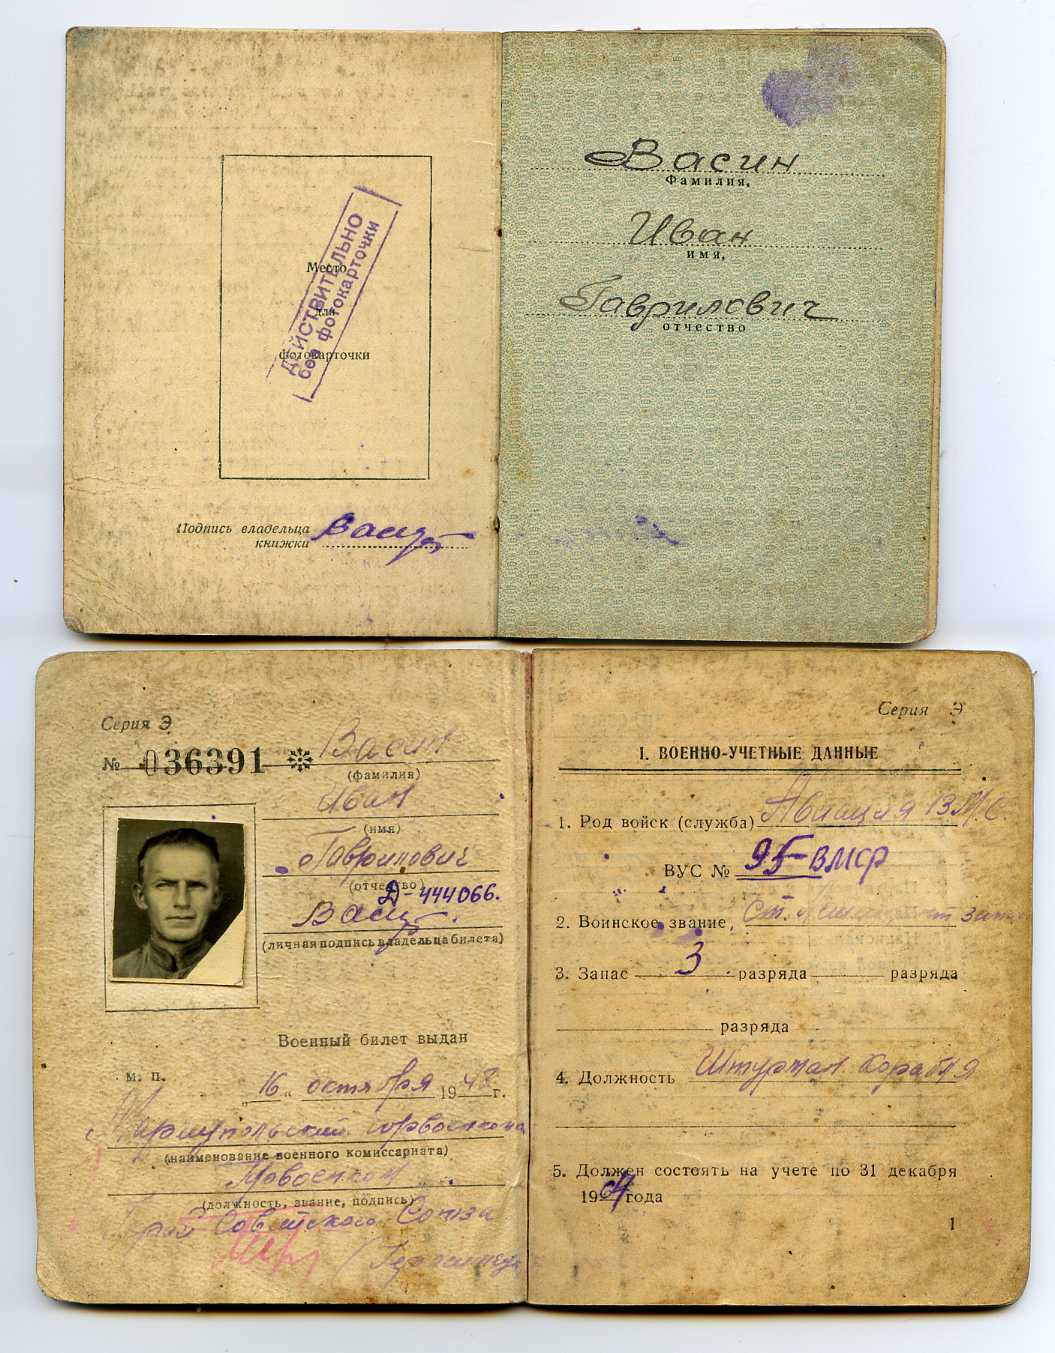 Васин
Фамилия,
Иван
имя,
Гаврилович
отчество
Место
для
фотокарточки
ДЕЙСТВИТЕЛЬНО
без фотокарточки
Подпись владельца
книжки
Серия Э
№ 036391
Васин
(фамилия)
Иван
(имя)
Гаврилович
(отчество)
Д-444066.
(личная подпись владельца билета)
Военный билет выдан
М. П.
"16" октября 1948 г.
Мариупольский горвоенкомат
(наименование военного комиссариата)
Горвоенком
(должность, звание, подпись)
Герой Советского Союза
Серия Э
I. ВОЕННО-УЧЕТНЫЕ ДАННЫЕ
1. Род войск (служба) Авиация В.М.С.
ВУС № 95-ВМФ
2. Воинское звание Ст. лейтенант
3. Запас 3 разряда разряда
разряда
4. Должность Штурман корабля
5. Должен состоять на учете по 31 декабря
19 года
1